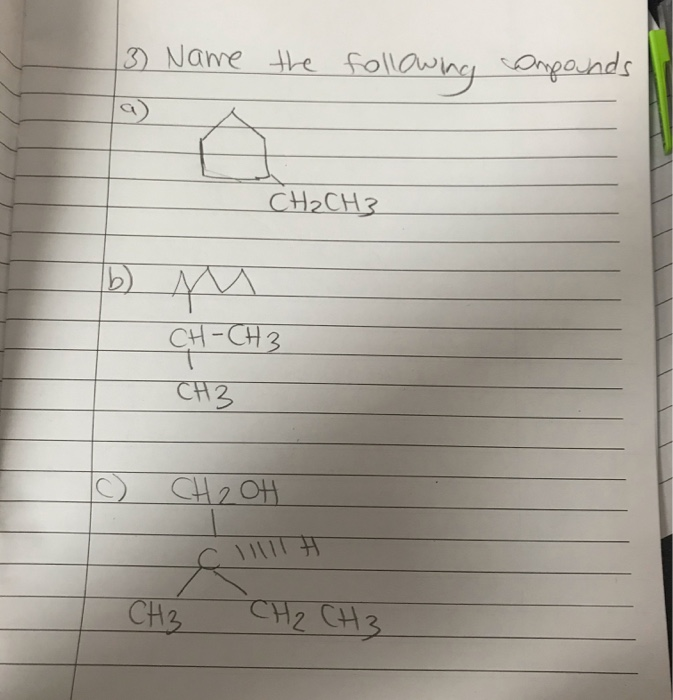 3) Name the following compounds
a)
CH2CH3
b)
CH-CH3
CH3
c) CH2OH
C H
CH3 CH2 CH3